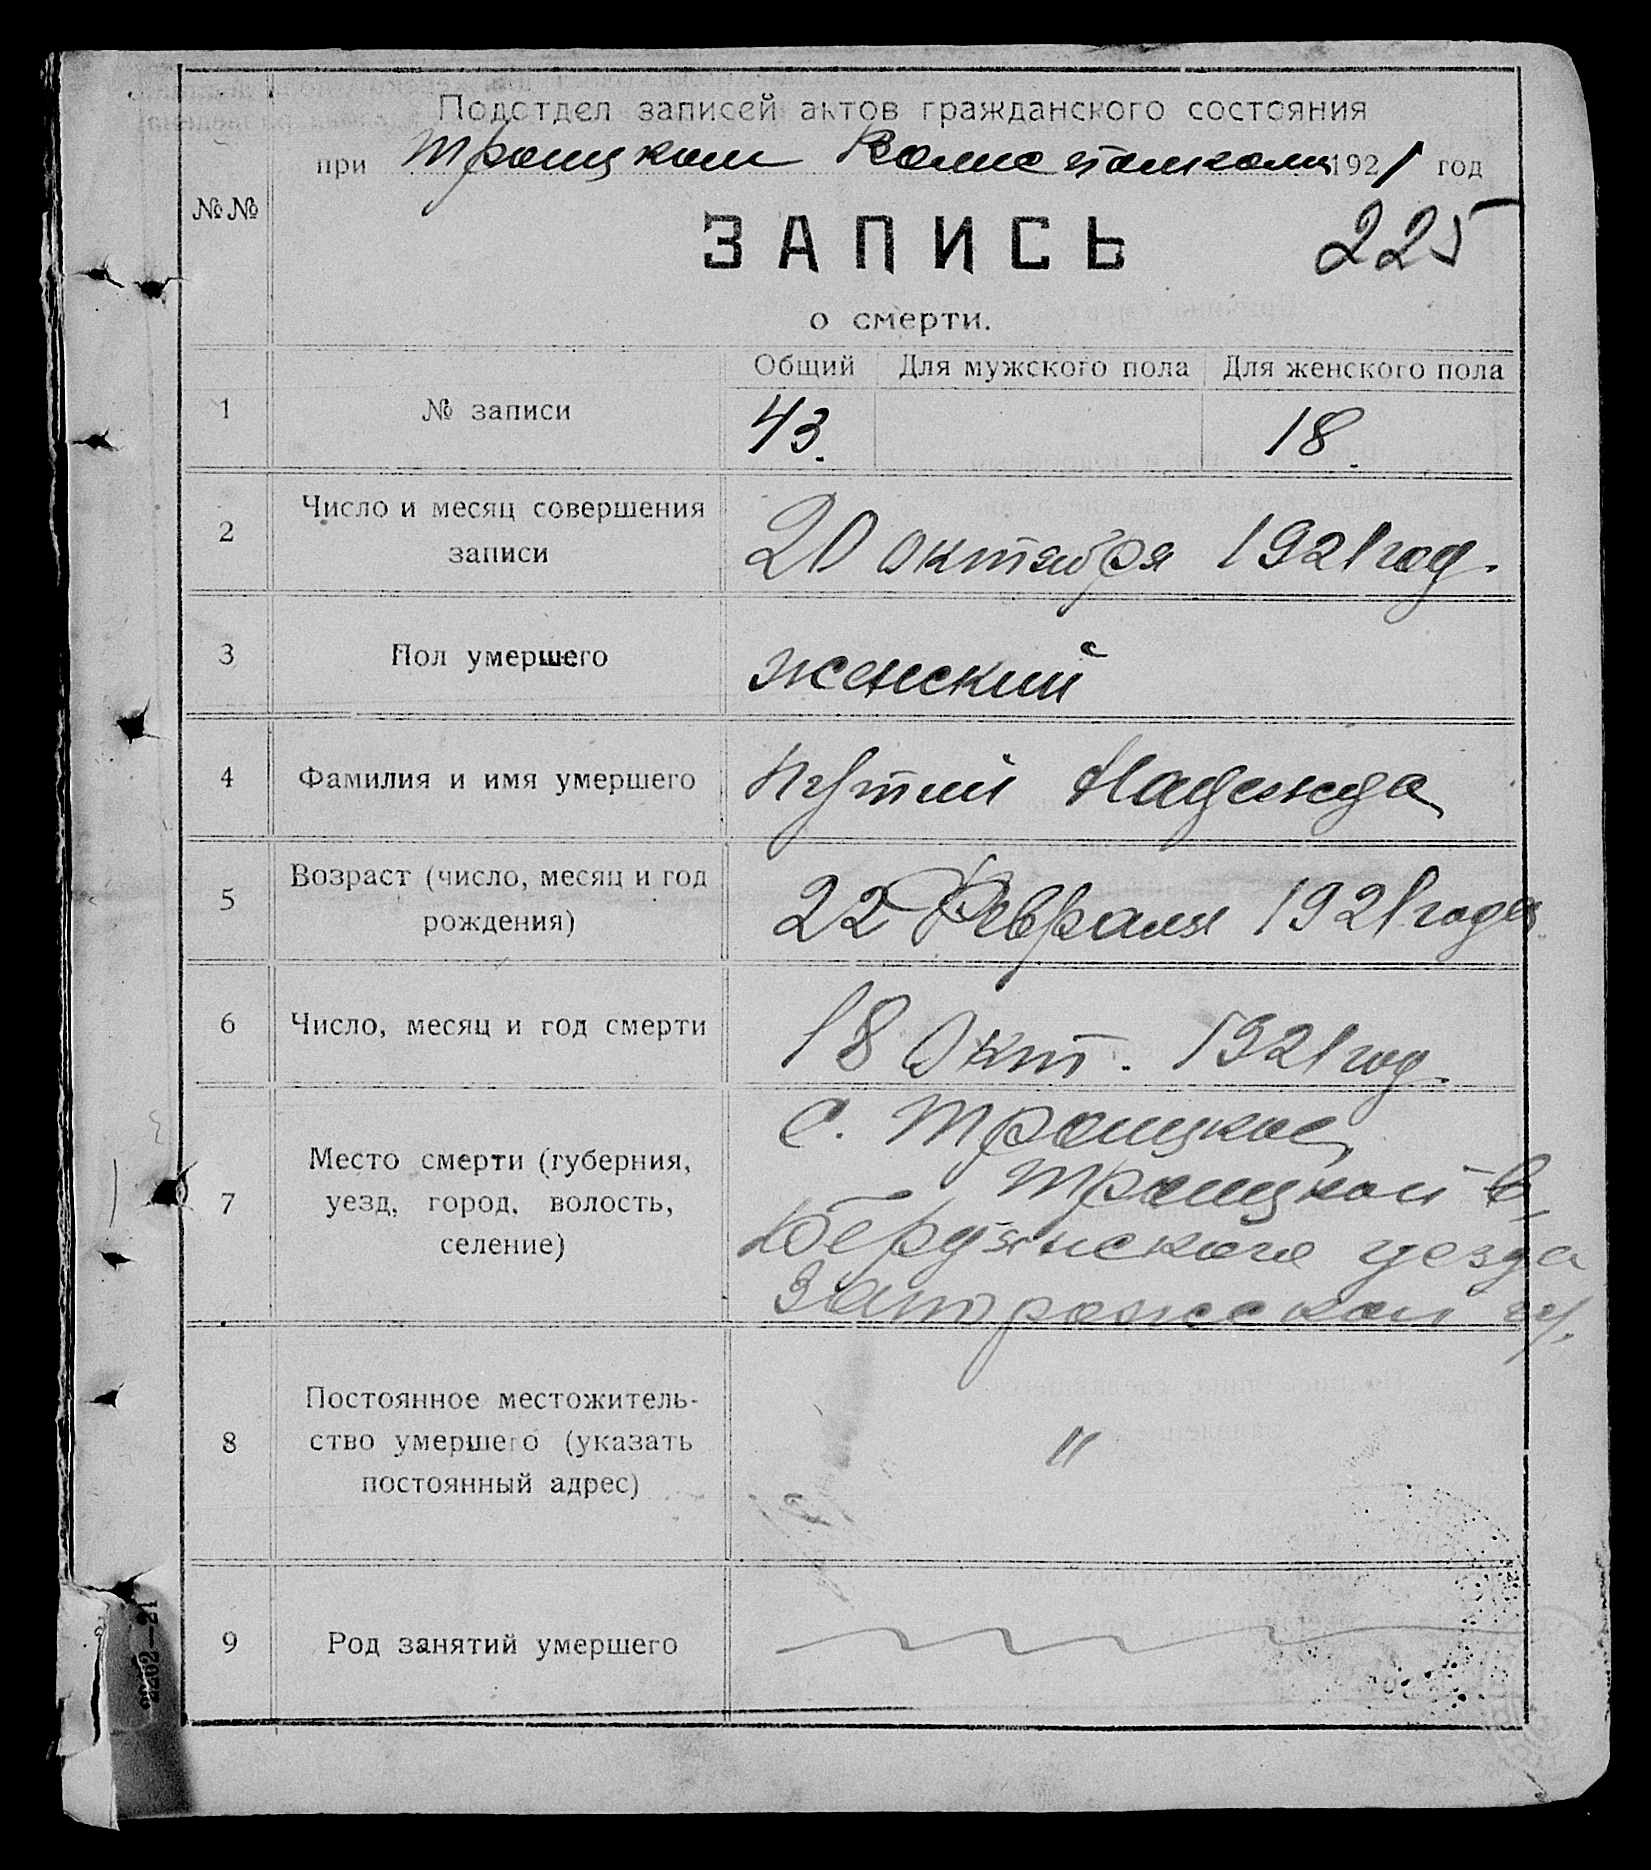 Подотдел записей актов гражданского состояния
при Троицком Волисполкоме 1921 год
№№
ЗАПИСЬ
225
о смерти.
Общий Для мужского пола Для женского пола
1 № записи 43. 18.
2 Число и месяц совершения записи
20 октября 1921 год.
3 Пол умершего женский
4 Фамилия и имя умершего Надежда
5 Возраст (число, месяц и год рождения)
22 Февраля 1921 года
6 Число, месяц и год смерти 18 Окт. 1921 год.
7 Место смерти (губерния, уезд, город, волость, селение)
с. Троицкое
Троицкой в.
Бердянского уезда
Запорожской гу.
8 Постоянное местожитель-
ство умершего (указать
постоянный адрес)
"
9 Род занятий умершего
2202—21